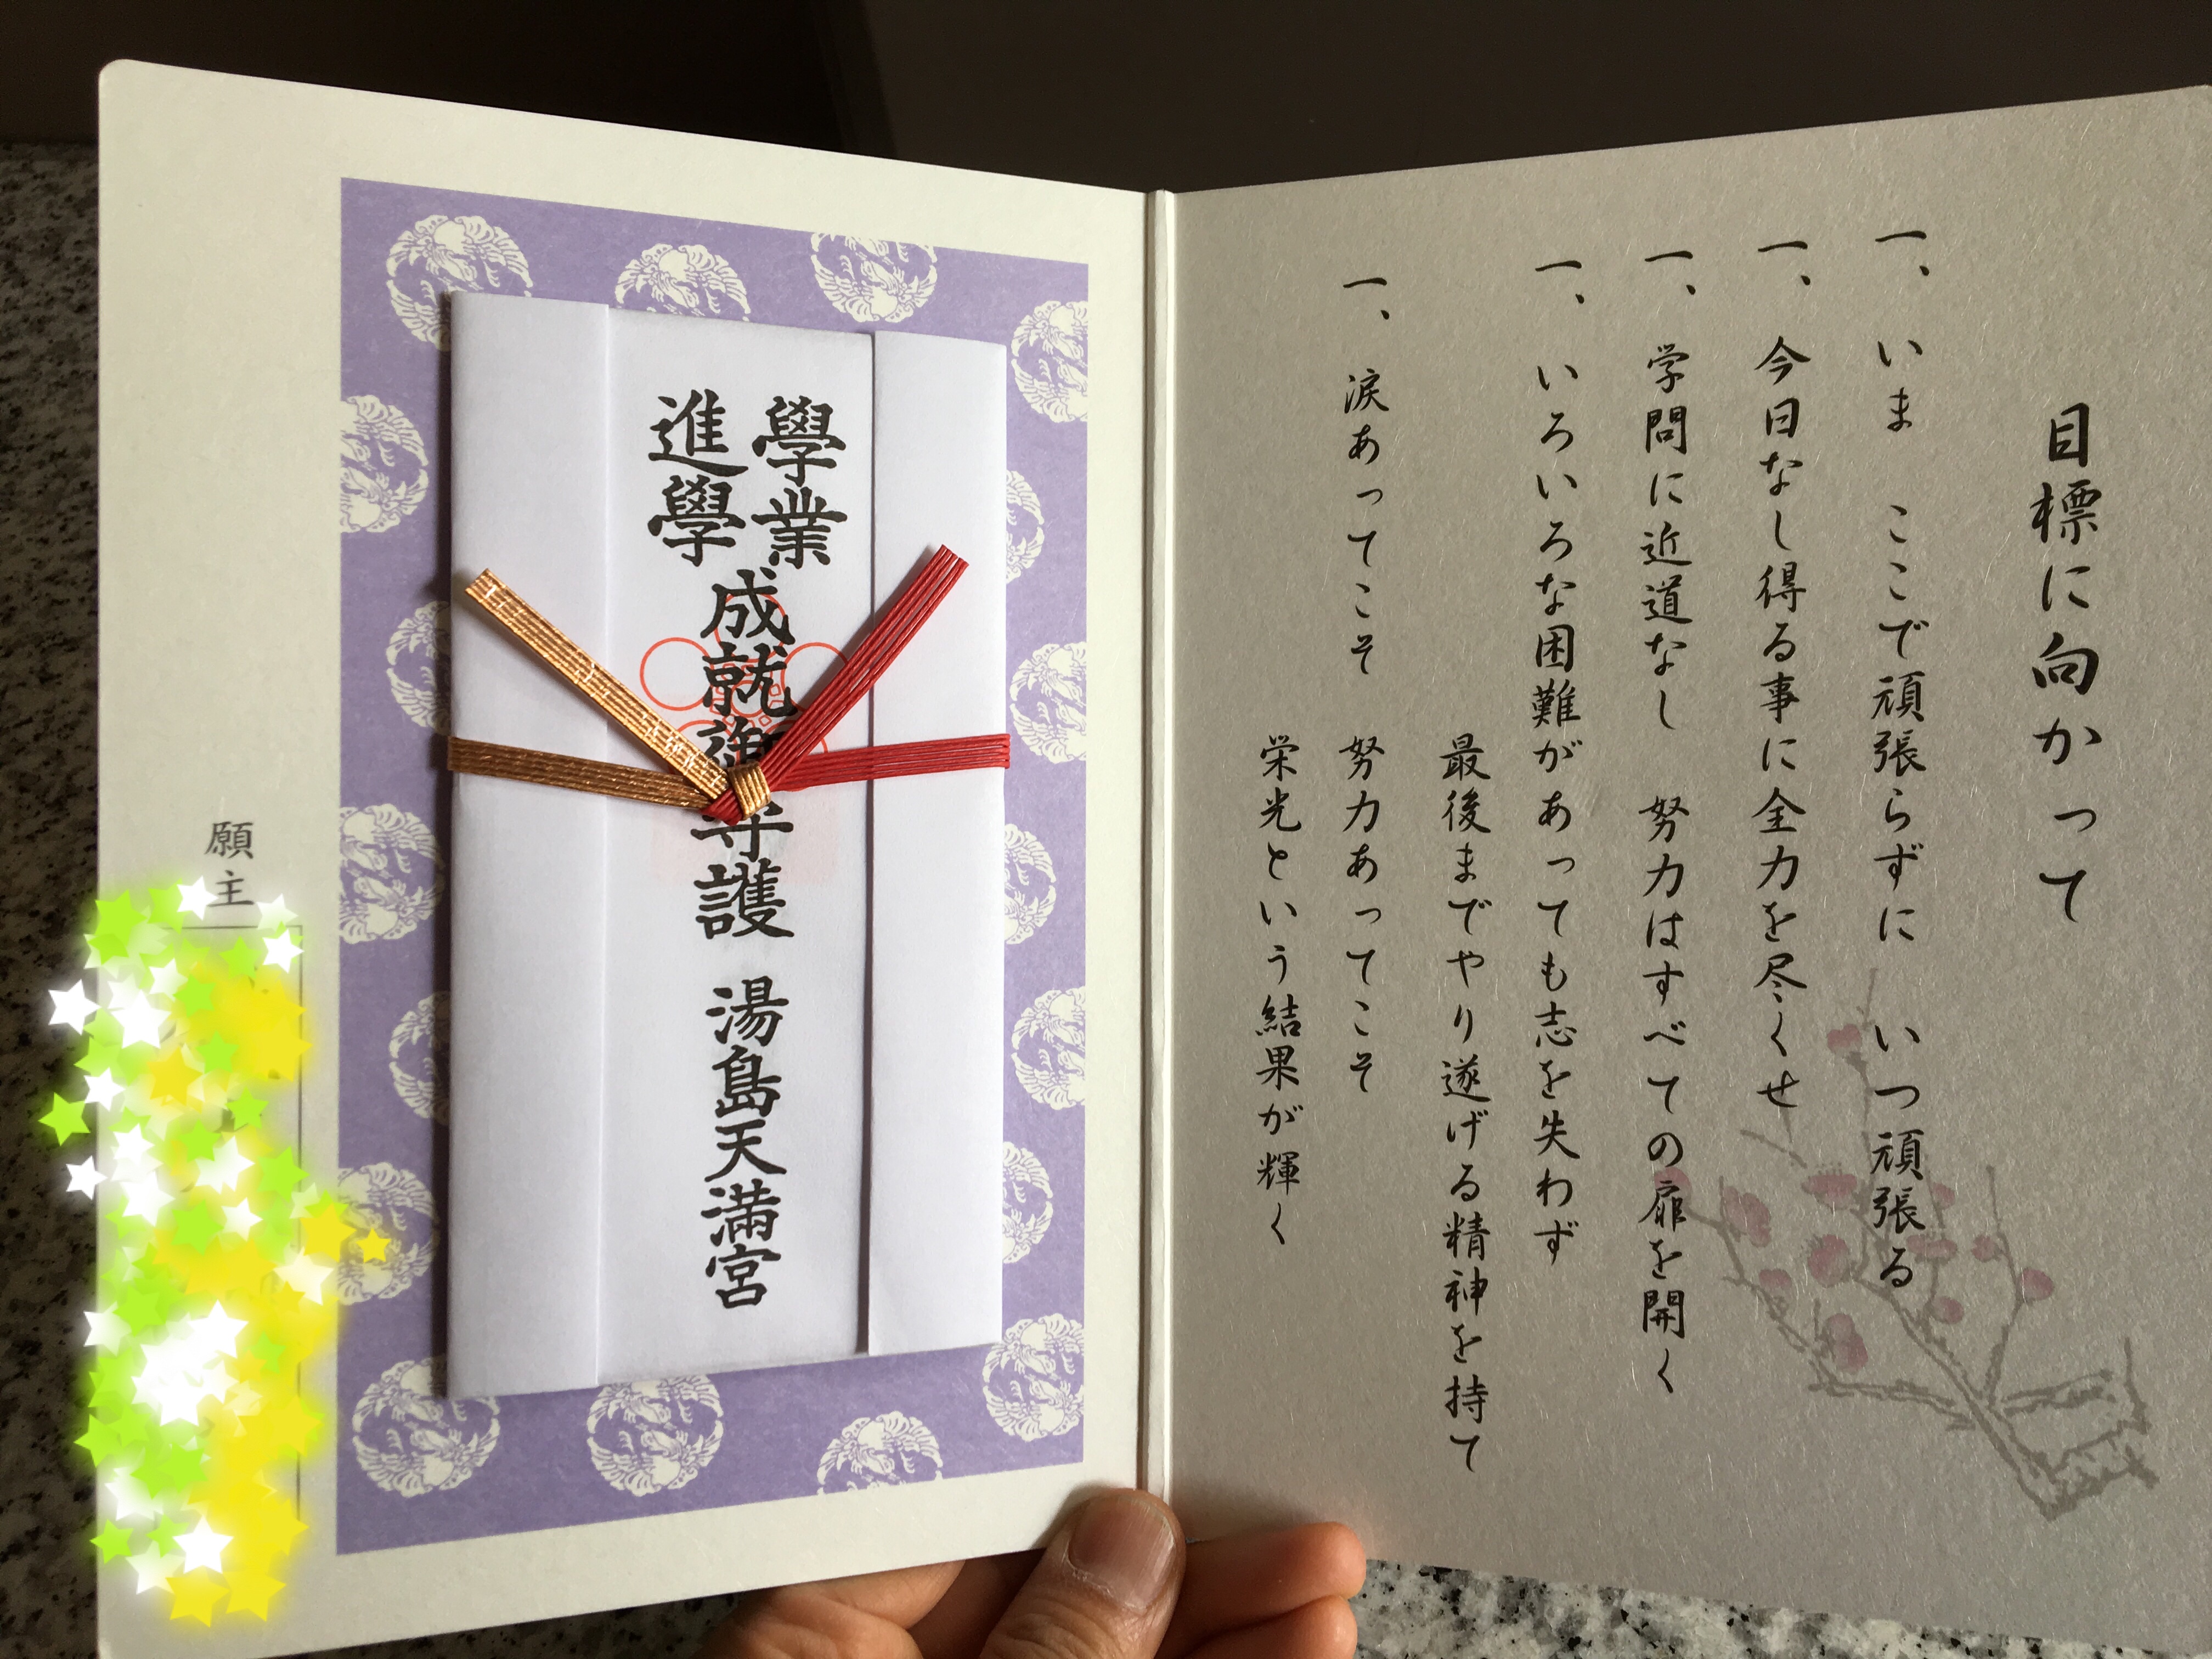 目標に向かって
一、いま ここで頑張らずに いつ頑張る
一、今日なし得る事に全力を尽くせ
一、学問に近道なし 努力はすべての扉を開く
一、いろいろな困難があっても志を失わず
最後までやり遂げる精神を持て
一、涙あってこそ 努力あってこそ
栄光という結果が輝く
學業
進學
成就御守護 湯島天満宮
願主